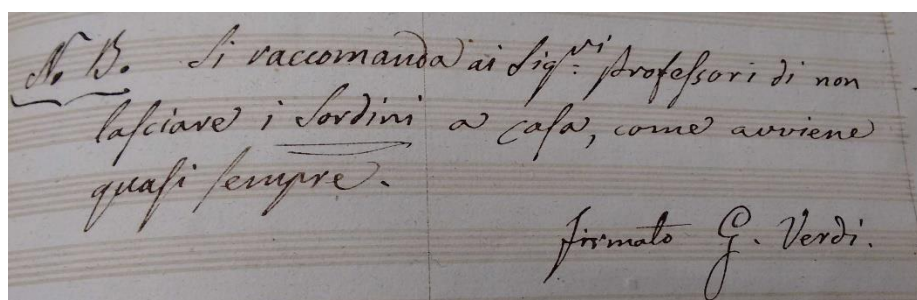 N. B. Si raccomanda ai Sig.ri Professori di non
lasciare i Sordini a casa, come avviene
quasi sempre.
firmato G. Verdi.